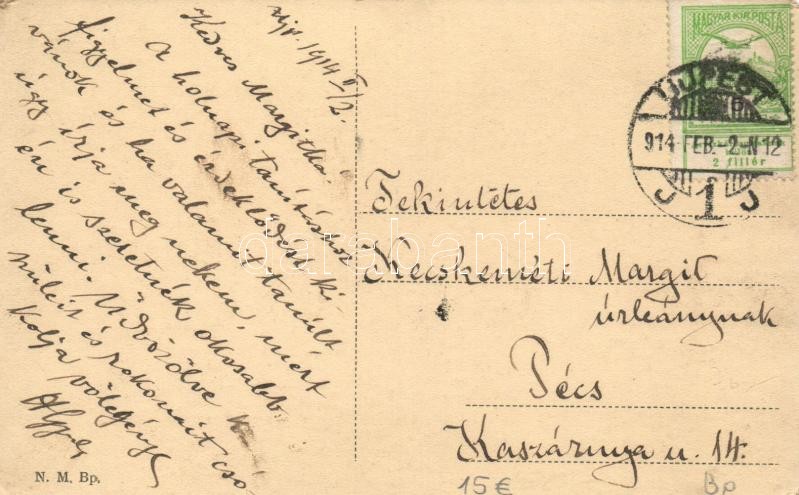 ujp. 1914 II/2.
Kedves Margitka.
A holnapi tanításhoz
figyelmet és érdeklődést kí-
vánok és ha valamit tanúlt
úgy írja meg nekem, mért
én is szeretnék okosabb
lenni. Üdvözölve
szüleit és rokonait cso
kolja vőlegénye
MAGYAR KIR. POSTA
2 fillér
ÚJPEST
914 FEB.-2-N12
1
Tekintetes
Kecskeméti Margit
úrleánynak
Pécs
Kaszárnya u. 14.
darabanth
N. M. Bp.
15€
Bp